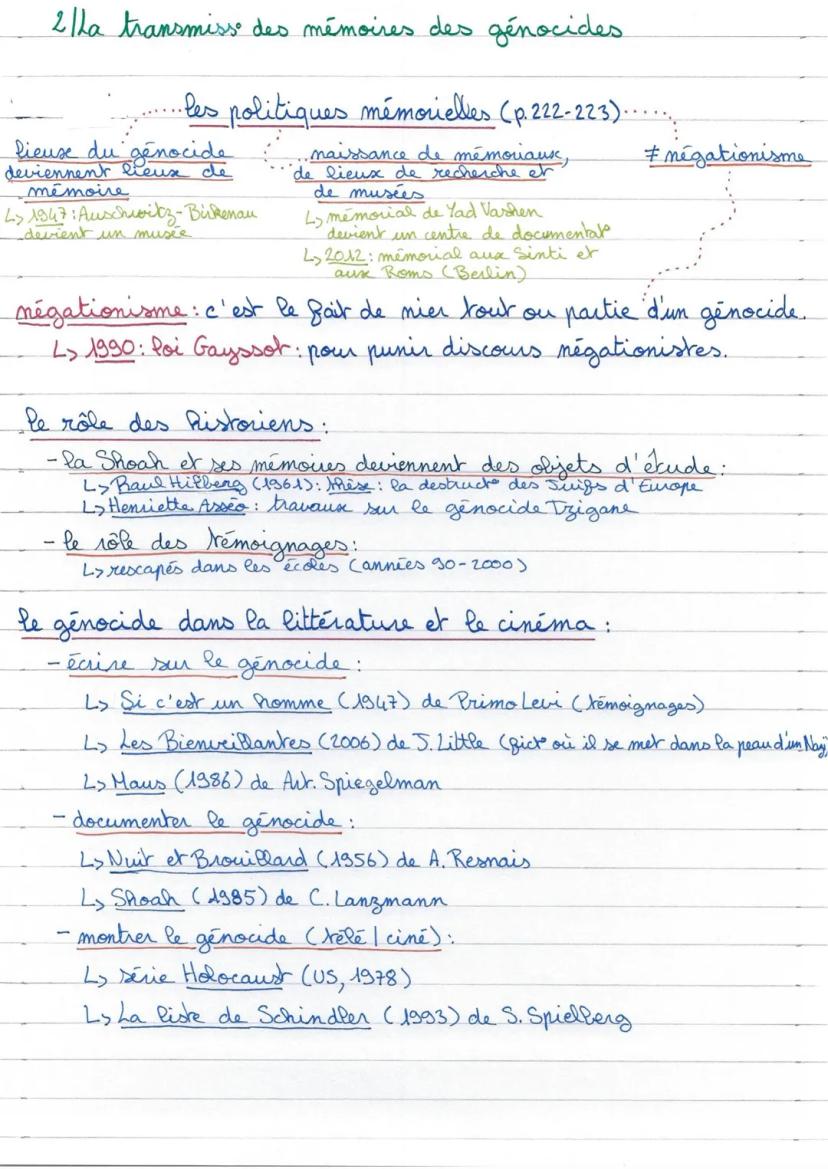 2/La transmiss° des mémoires des génocides
les politiques mémorielles (p.222-223)
lieux du génocide
deviennent lieux de
mémoire
↳ 1947 : Auschwitz-Birkenau
devient un musée
naissance de mémoriaux,
de lieux de recherche et
de musées
↳ mémorial de Yad Vashen
devient un centre de documentat°
↳ 2012 : mémorial aux Sinti et
aux Roms (Berlin)
≠ négationisme
négationisme : c'est le fait de nier tout ou partie d'un génocide.
↳ 1990 : loi Gayssot : pour punir discours négationistes.
le rôle des historiens :
- la Shoah et ses mémoires deviennent des objets d'étude :
↳ Raul Hilberg (1961) : thèse : la destruct° des Juifs d'Europe
↳ Henriette Asséo : travaux sur le génocide Tzigane
- le rôle des témoignages :
↳ rescapés dans les écoles (années 90-2000)
le génocide dans la littérature et le cinéma :
- écrire sur le génocide :
↳ Si c'est un homme (1947) de Primo Levi (témoignages)
↳ Les Bienveillantes (2006) de J. Little (fict° où il se met dans la peau d'un Nazi)
↳ Maus (1986) de Art. Spiegelman
- documenter le génocide :
↳ Nuit et Brouillard (1956) de A. Resnais
↳ Shoah (1985) de C. Lanzmann
- montrer le génocide (télé / ciné) :
↳ série Holocaust (US, 1978)
↳ La liste de Schindler (1993) de S. Spielberg